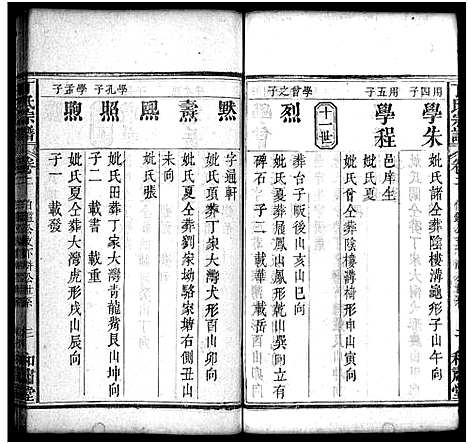 用四子
學朱
妣氏諸仝葬陰樓溝龜形子山午向
用五子
學程
邑庠生
妣氏曾仝葬陰樓溝椅形申山寅向
十一世
學曾之子
烈
葬台子阪後山亥山巳向
妣氏夏葬展鳳山鳳形乾山巽向立有
碑石 子二 載華
學孔子
默
字通軒
妣氏項葬丁家大灣犬形酉山卯向
燾
妣氏夏仝葬劉家坳駱家塘右側丑山
未向
熙
妣氏張
照
妣氏田葬丁家大灣青龍嘴艮山坤向
子二 載書 載重
學孟子
煦
妣氏夏仝葬大灣虎形戌山辰向
子一 載發
氏宗譜
三
和
堂